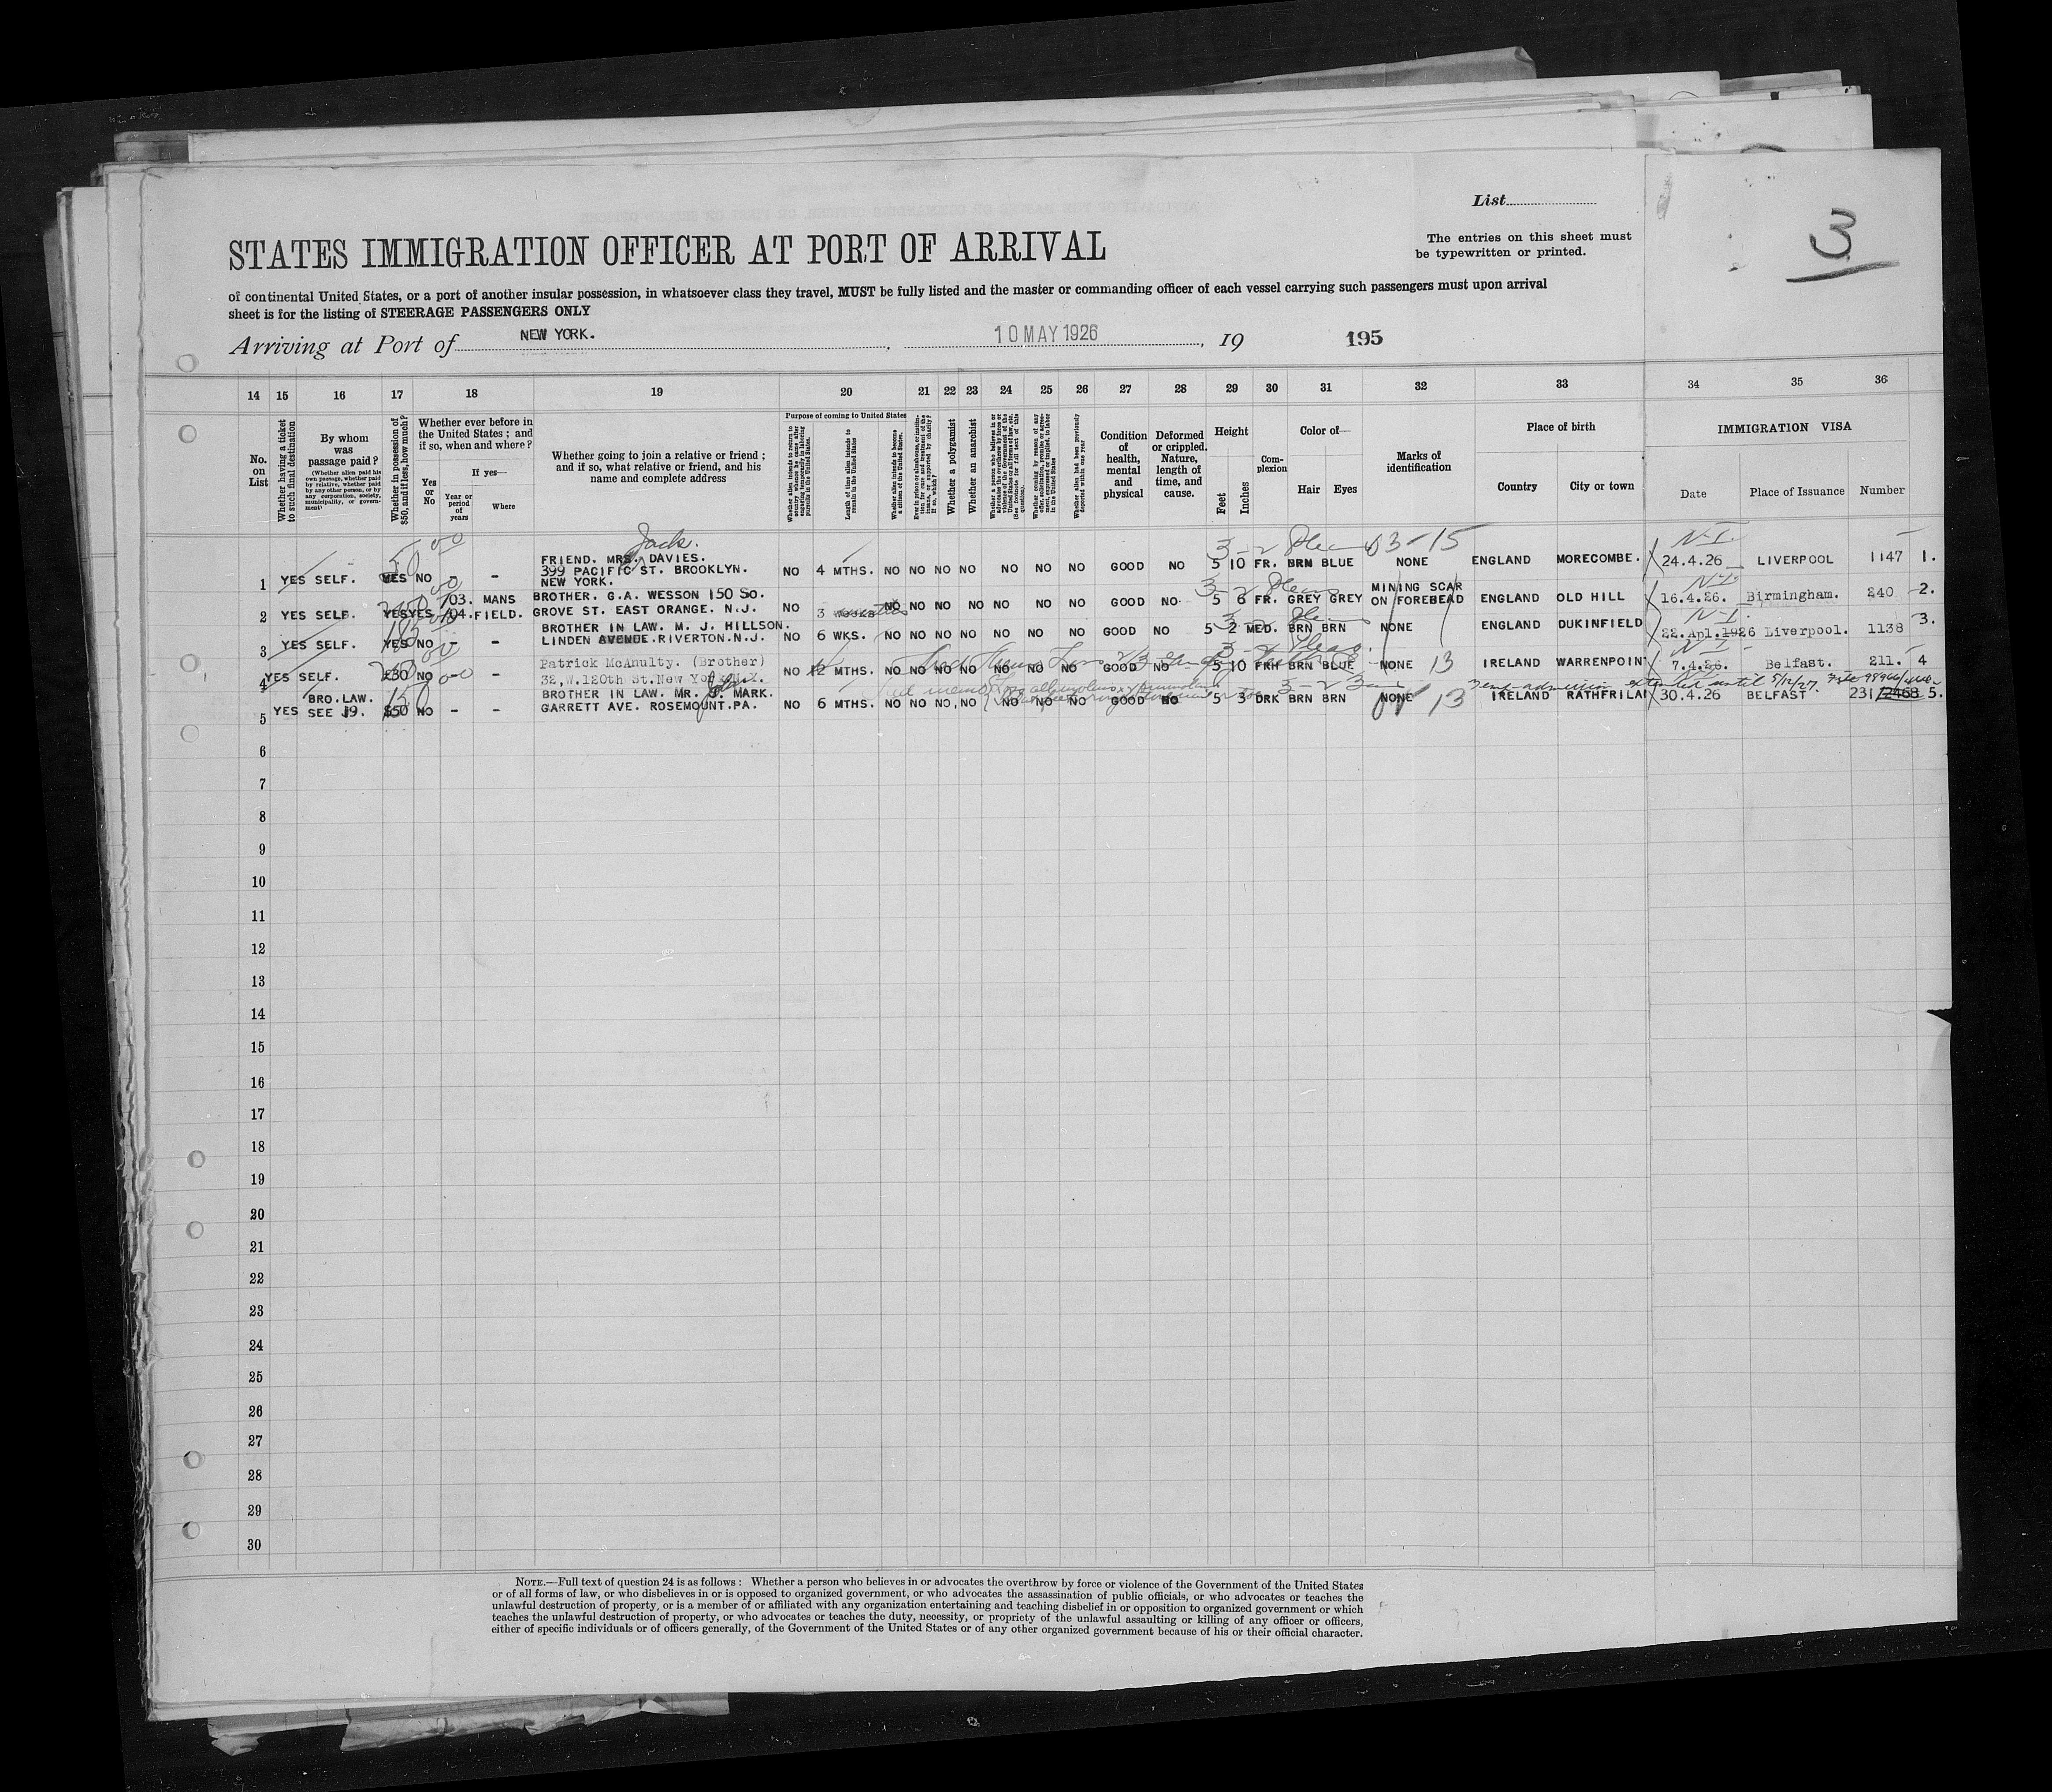 List
3
The entries on this sheet must
be typewritten or printed.
STATES IMMIGRATION OFFICER AT PORT OF ARRIVAL
of continental United States, or a port of another insular possession, in whatsoever class they travel, MUST be fully listed and the master or commanding officer of each vessel carrying such passengers must upon arrival
sheet is for the listing of STEERAGE PASSENGERS ONLY
Arriving at Port of NEW YORK. , 10 MAY 1926 , 19 195
14 15 16 17 18 19 20 21 22 23 24 25 26 27 28 29 30 31 32 33 34 35 36
No. on List
Whether having a ticket to such final destination
By whom was passage paid?
(Whether alien paid his own passage, whether paid by relative, whether paid by any other person, or by any corporation, society, municipality, or government)
Whether in possession of $50, and if less, how much?
Whether ever before in the United States; and if so, when and where?
Yes or No
If yes—
Year or period of years
Where
Whether going to join a relative or friend; and if so, what relative or friend, and his name and complete address
Purpose of coming to United States
Whether alien intends to return to country whence he came after engaging temporarily in laboring pursuits in the United States.
Length of time alien intends to remain in the United States
Whether alien intends to become a citizen of the United States.
Whether a polygamist
Whether an anarchist
Whether alien had been previously deported within one year
Condition of health, mental and physical
Deformed or crippled. Nature, length of time, and cause.
Height
Feet
Inches
Complexion
Color of—
Hair
Eyes
Marks of identification
Place of birth
Country
City or town
IMMIGRATION VISA
Date
Place of Issuance
Number
Jack.
FRIEND. MRS. DAVIES.
1 YES SELF. YES NO – – 399 PACIFIC ST. BROOKLYN. NO 4 MTHS. NO NO NO NO NO NO NO GOOD NO 5 10 FR. BRN BLUE NONE ENGLAND MORECOMBE. 24.4.26 LIVERPOOL 1147 1.
NEW YORK.
703. MANS BROTHER. G.A. WESSON 150 SO. MINING SCAR
2 YES SELF. YES YES 704. FIELD. GROVE ST. EAST ORANGE. N.J. NO 3 NO NO NO NO NO NO NO GOOD NO. 5 6 FR. GREY GREY ON FOREBEAD ENGLAND OLD HILL 16.4.26. Birmingham. 240 2.
BROTHER IN LAW. M. J. HILLSON.
3 YES SELF. YES NO – – LINDEN AVENUE. RIVERTON. N.J. NO 6 WKS. NO NO NO NO NO NO NO GOOD NO 5 2 MED. BRN BRN NONE ENGLAND DUKINFIELD 22.Apl.1926 Liverpool. 1138 3.
Patrick McAnulty. (Brother)
4 YES SELF. £30 NO – 32,W.120th St.New York NO 12 MTHS. NO NO NO NO NO NO NO GOOD NO 5 10 FRH BRN BLUE NONE 13 IRELAND WARRENPOIN 7.4.26. Belfast. 211. 4
BRO.LAW. BROTHER IN LAW. MR. J. MARK.
5 YES SEE 19. $50 NO – – GARRETT AVE. ROSEMOUNT.PA. NO 6 MTHS. NO NO NO NO NO NO NO GOOD NO 5 3 DRK BRN BRN NONE 13 IRELAND RATHFRILA 30.4.26 BELFAST 231 5.
6
7
8
9
10
11
12
13
14
15
16
17
18
19
20
21
22
23
24
25
26
27
28
29
30
NOTE.—Full text of question 24 is as follows: Whether a person who believes in or advocates the overthrow by force or violence of the Government of the United States
or of all forms of law, or who disbelieves in or is opposed to organized government, or who advocates the assassination of public officials, or who advocates or teaches the
unlawful destruction of property, or is a member of or affiliated with any organization entertaining and teaching disbelief in or opposition to organized government or which
teaches the unlawful destruction of property, or who advocates or teaches the duty, necessity, or propriety of the unlawful assaulting or killing of any officer or officers,
either of specific individuals or of officers generally, of the Government of the United States or of any other organized government because of his or their official character.